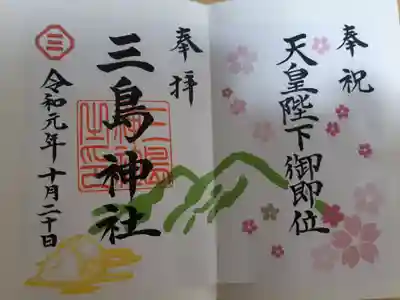 奉祝
天皇陛下御即位
奉拝
三島神社
令和元年十月二十日
三